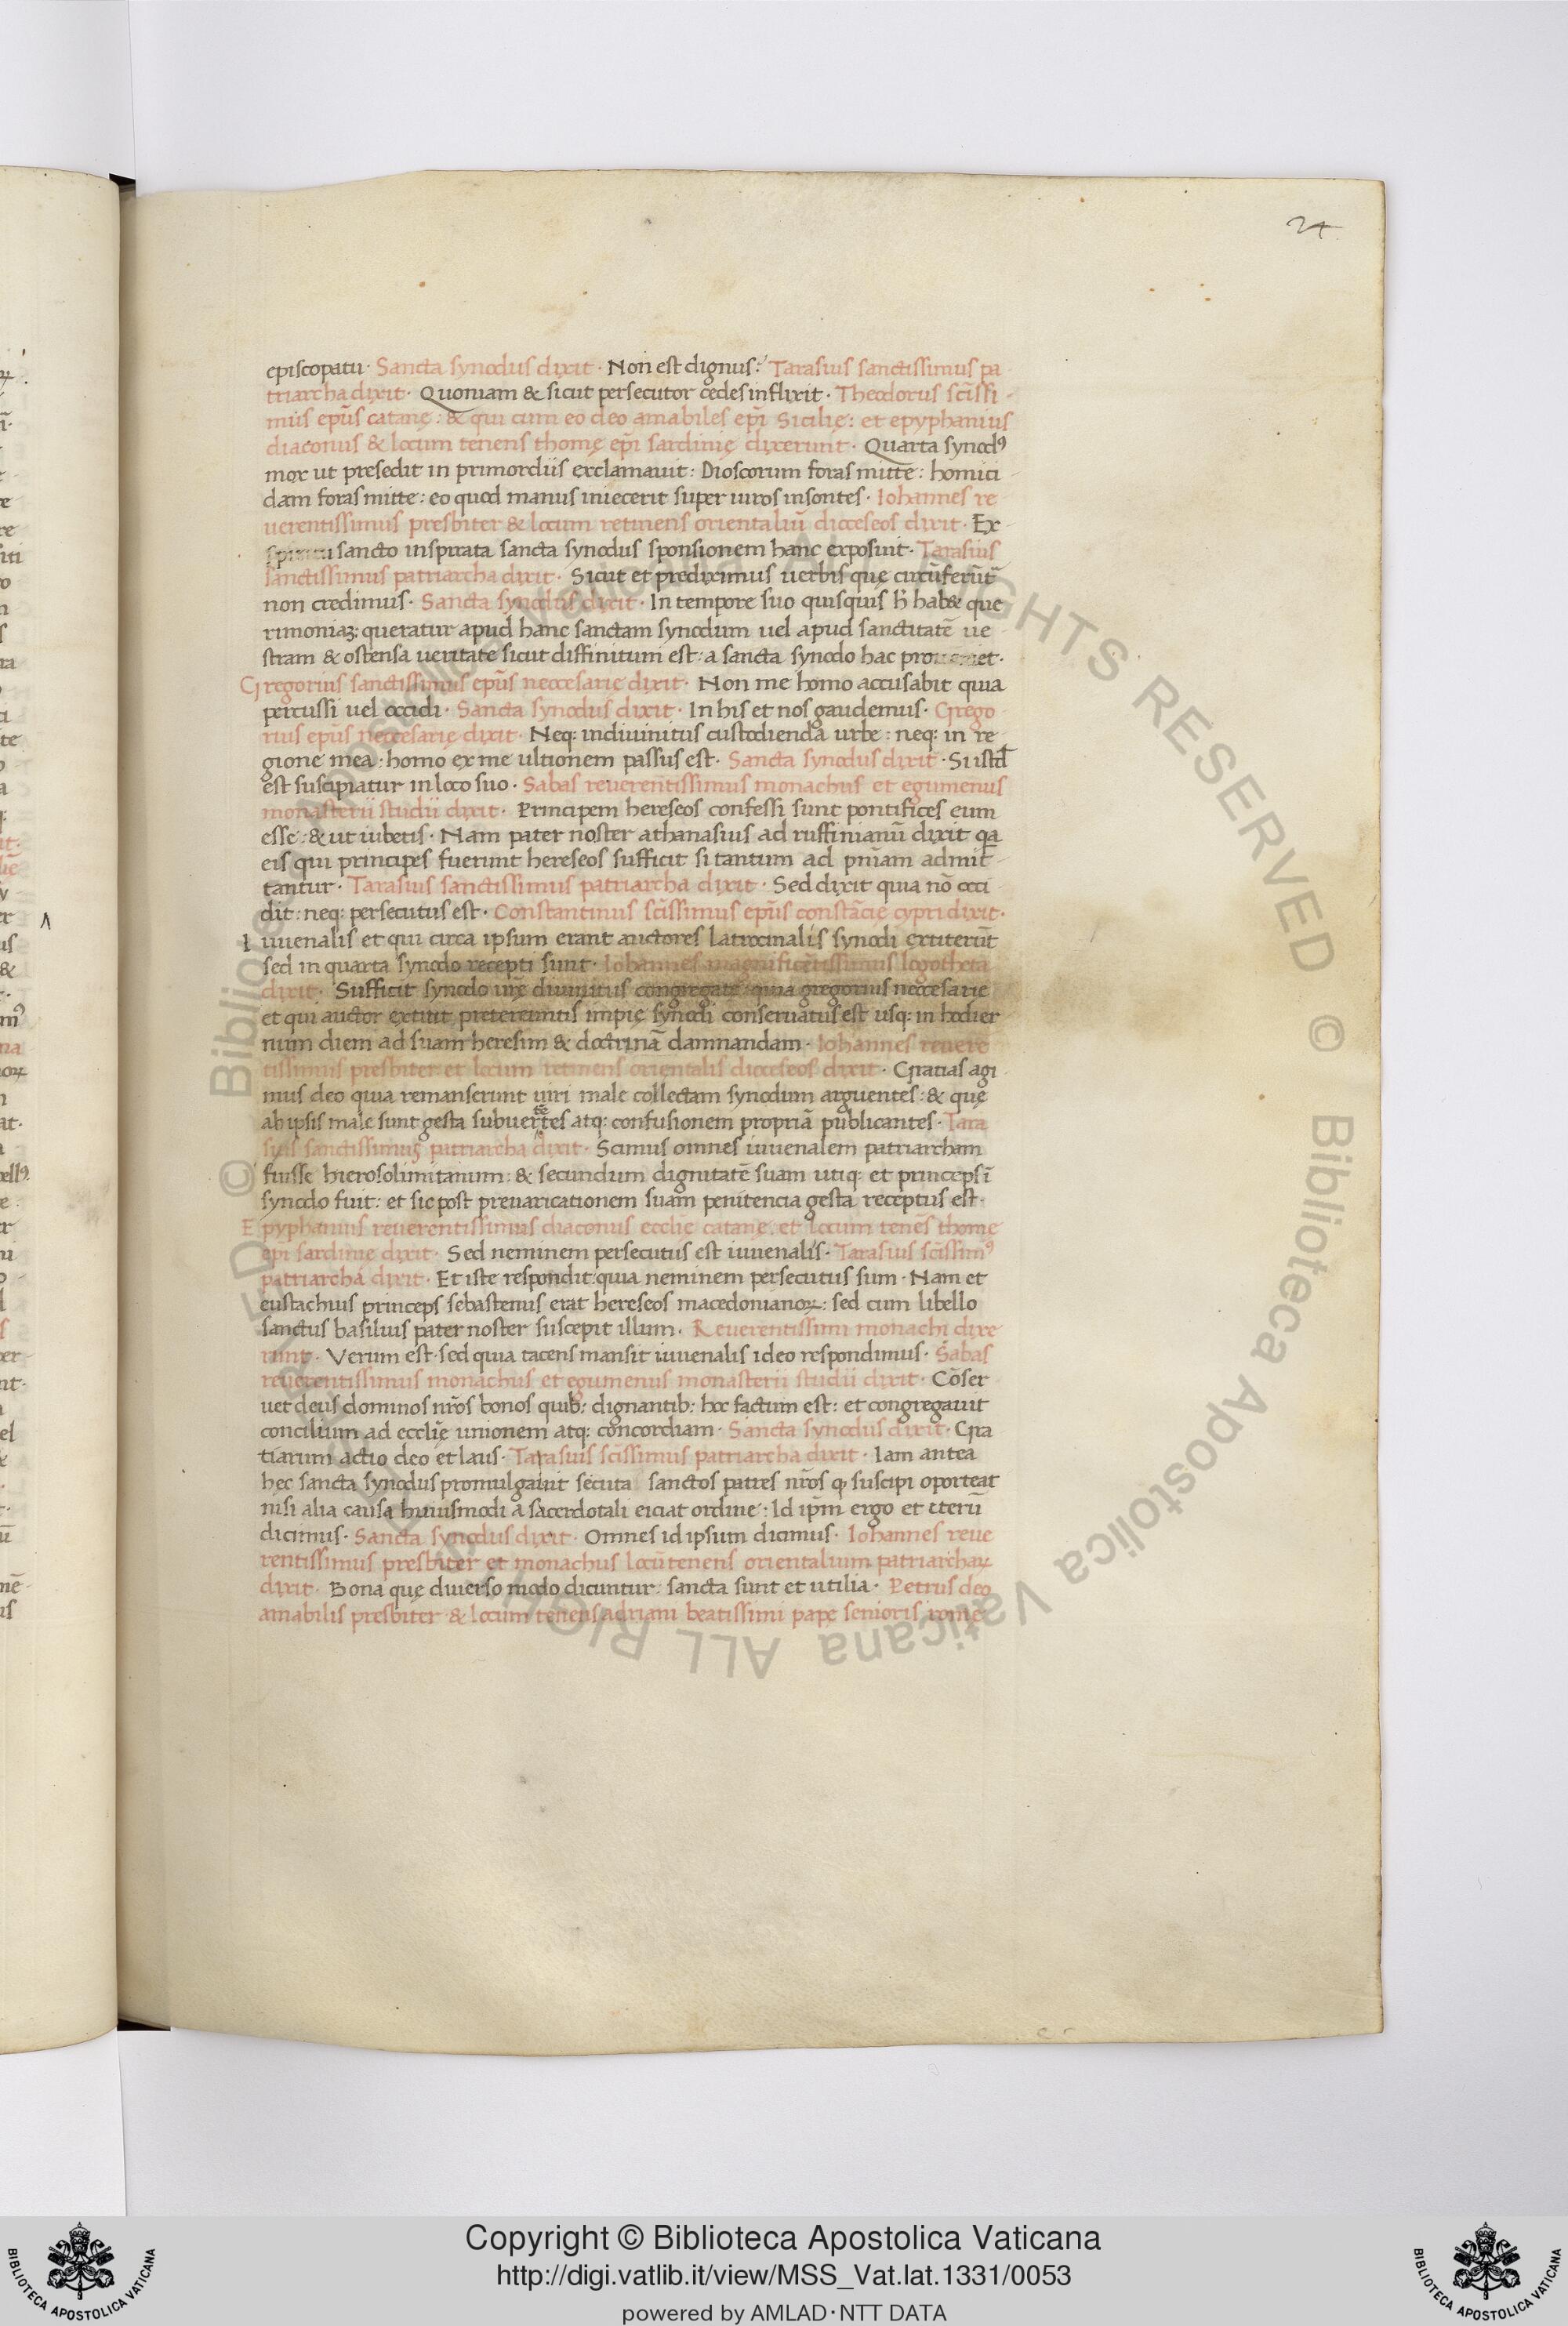 24
episcopatu · Sancta synodus dixit · Non est dignus : Tarasius sanctissimus pa
triarcha dixit · Quoniam & sicut persecutor cędes inflixit · Theodorus scīssi
mus epūs catanę : & qui cum eo deo amabiles epī Sicilię : et epyphanius
diaconus & locum tenens thomę epī sardinię dixerunt · Quarta synodꝰ
mox ut presedit in primordiis exclamauit : Dioscorum foras mitte : homici
dam foras mitte : eo quod manus iniecerit super uiros insontes · Iohannes re
uerentissimus presbiter & locum retinens orientaliū dioceseos dixit · Ex
spiritu sancto inspirata sancta synodus sponsionem hanc exposuit · Tarasius
sanctissimus patriarcha dixit · Sicut et prediximus uerbis quę circūferūt̄
non credimus · Sancta synodus dixit · In tempore suo quisquis h̄ hab& que
rimoniaꝫ : queratur apud hanc sanctam synodum uel apud sanctitatē ue
stram & ostensa ueritate sicut diffinitum est : a sancta synodo hac
Gregorius sanctissimus epūs neocesarię dixit · Non me homo accusabit quia
percussi uel occidi · Sancta synodus dixit · In his et nos gaudemus · Grego
rius epūs neocesarię dixit · Neq: in diuinitus custodienda urbe : neq: in re
gione mea : homo ex me ultionem passus est · Sancta synodus dixit · Si istđ
est suscipiatur in loco suo · Sabas reuerentissimus monachus et egumenus
monasterii studii dixit · Principem hereseos confessi sunt pontifices eum
esse : & ut iubetis · Nam pater noster athanasius ad ruffinianū dixit qa
eis qui principes fuerunt hereseos sufficit si tantum ad pnīam admit
tantur · Tarasius sanctissimus patriarcha dixit · Sed dixit quia nō occi
dit : neq: persecutus est · Constantinus scīssimus epūs constācię cypri dixit ·
Iuuenalis et qui circa ipsum erant auctores latrocinalis synodi extiterūt
sed in quarta synodo recepti sunt · Iohannes magnificētissimus logotheta
dixit · Sufficit synodo urę diuinitus congregatę quia gregorius neocesarie
et qui auctor extitit pretereuntis impię synodi conseruatus est usq: in hodier
num diem ad suam heresim & doctrinā damnandam · Iohannes reuere
tissimus presbiter et locum retinens orientalis dioceseos dixit · Gratias agi
mus deo quia remanserunt uiri male collectam synodum arguentes : & quę
ab ipsis male sunt gesta subuertētes atq: confusionem propriā publicantes · Tara
sius sanctissimus patriarcha dixit · Scimus omnes iuuenalem patriarcham
fuisse hierosolimitanum : & secundum dignitatē suam utiq: et princeps ī
synodo fuit : et sic post preuaricationem suam penitencia gesta receptus est ·
Epyphanius reuerentissimus diaconus ecclię catanę et locum tenēs thomę
epi sardinie dixit · Sed neminem persecutus est iuuenalis · Tarasius scīssimꝰ
patriarcha dixit · Et iste respondit : quia neminem persecutus sum · Nam et
eustachius princeps sebastenus erat hereseos macedonianoꝝ : sed cum libello
sanctus basilius pater noster suscepit illum · Reuerentissimi monachi dixe
runt · Verum est · sed quia tacens mansit iuuenalis ideo respondimus · Sabas
reuerentissimus monachus et egumenus monasterii studii dixit · Cōser
uet deus dominos nr̄os bonos quib: dignantib: hoc factum est : et congregauit
concilium ad ecclię unionem atq: concordiam · Sancta synodus dixit · Gra
tiarum actio deo et laus · Tarasius scīssimus patriarcha dixit · Iam antea
hęc sancta synodus promulgauit secuta sanctos patres nr̄os ꝙ suscipi oporteat
nisi alia causa huiusmodi a sacerdotali eiciat ordine : Id ip̄m ergo et iterū
dicimus · Sancta synodus dixit · Omnes id ipsum dicimus · Iohannes reue
rentissimus presbiter et monachus locū tenens orientalium patriarchaꝝ
dixit · Bona quę diuerso modo dicuntur : sancta sunt et utilia · Petrus deo
amabilis presbiter & locum tenens adriani beatissimi papę senioris romę
© Biblioteca Apostolica Vaticana ALL RIGHTS RESERVED
Copyright © Biblioteca Apostolica Vaticana
http://digi.vatlib.it/view/MSS_Vat.lat.1331/0053
powered by AMLAD · NTT DATA
BIBLIOTECA APOSTOLICA VATICANA
BIBLIOTECA APOSTOLICA VATICANA